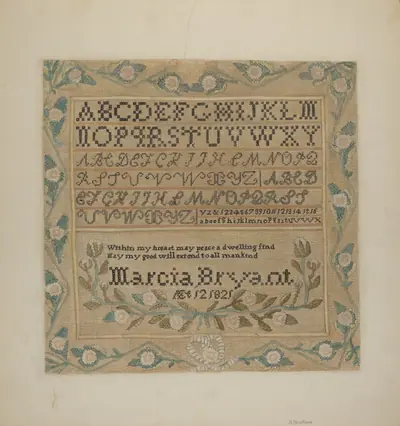 ABCDEFGHIJKLM
NOPQRSTUVWXY
ABCDEFGHIJHLMNOPQ
RSTUVWXYZ ABCD
EFGHIJHLMNOPQRST
UVWXYZ
Within my heart may peace a dwelling find
May my good will extend to all mankind
Marcia Bryant
Æt 12 1821